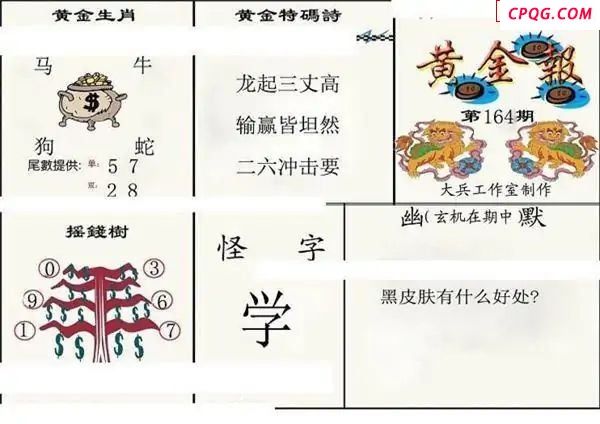 CPQG.COM
黄金生肖
马 牛
狗 蛇
尾數提供: 单: 5 7
双: 2 8
黄金特碼詩
龙起三丈高
输赢皆坦然
二六冲击要
黄金報
第164期
大兵工作室制作
摇錢樹
0 3
9 6
1 7
怪 字
学
幽(玄机在期中)默
黑皮肤有什么好处?